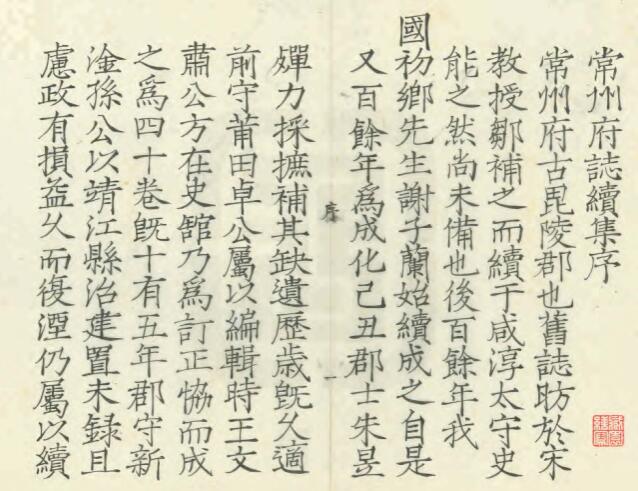 常州府誌續集序
常州府古毘陵郡也舊誌昉於宋
教授鄒補之而續于咸淳太守史
能之然尚未備也後百餘年我
國初鄉先生謝子蘭始續成之自是
又百餘年為成化己丑郡士朱昱
序
一
殫力採摭補其缺遺歷歲既久適
前守莆田卓公屬以編輯時王文
肅公方在史館乃為訂正恊而成
之為四十卷既十有五年郡守新
淦孫公以靖江縣治建置未錄且
慮政有損益久而復湮仍屬以續